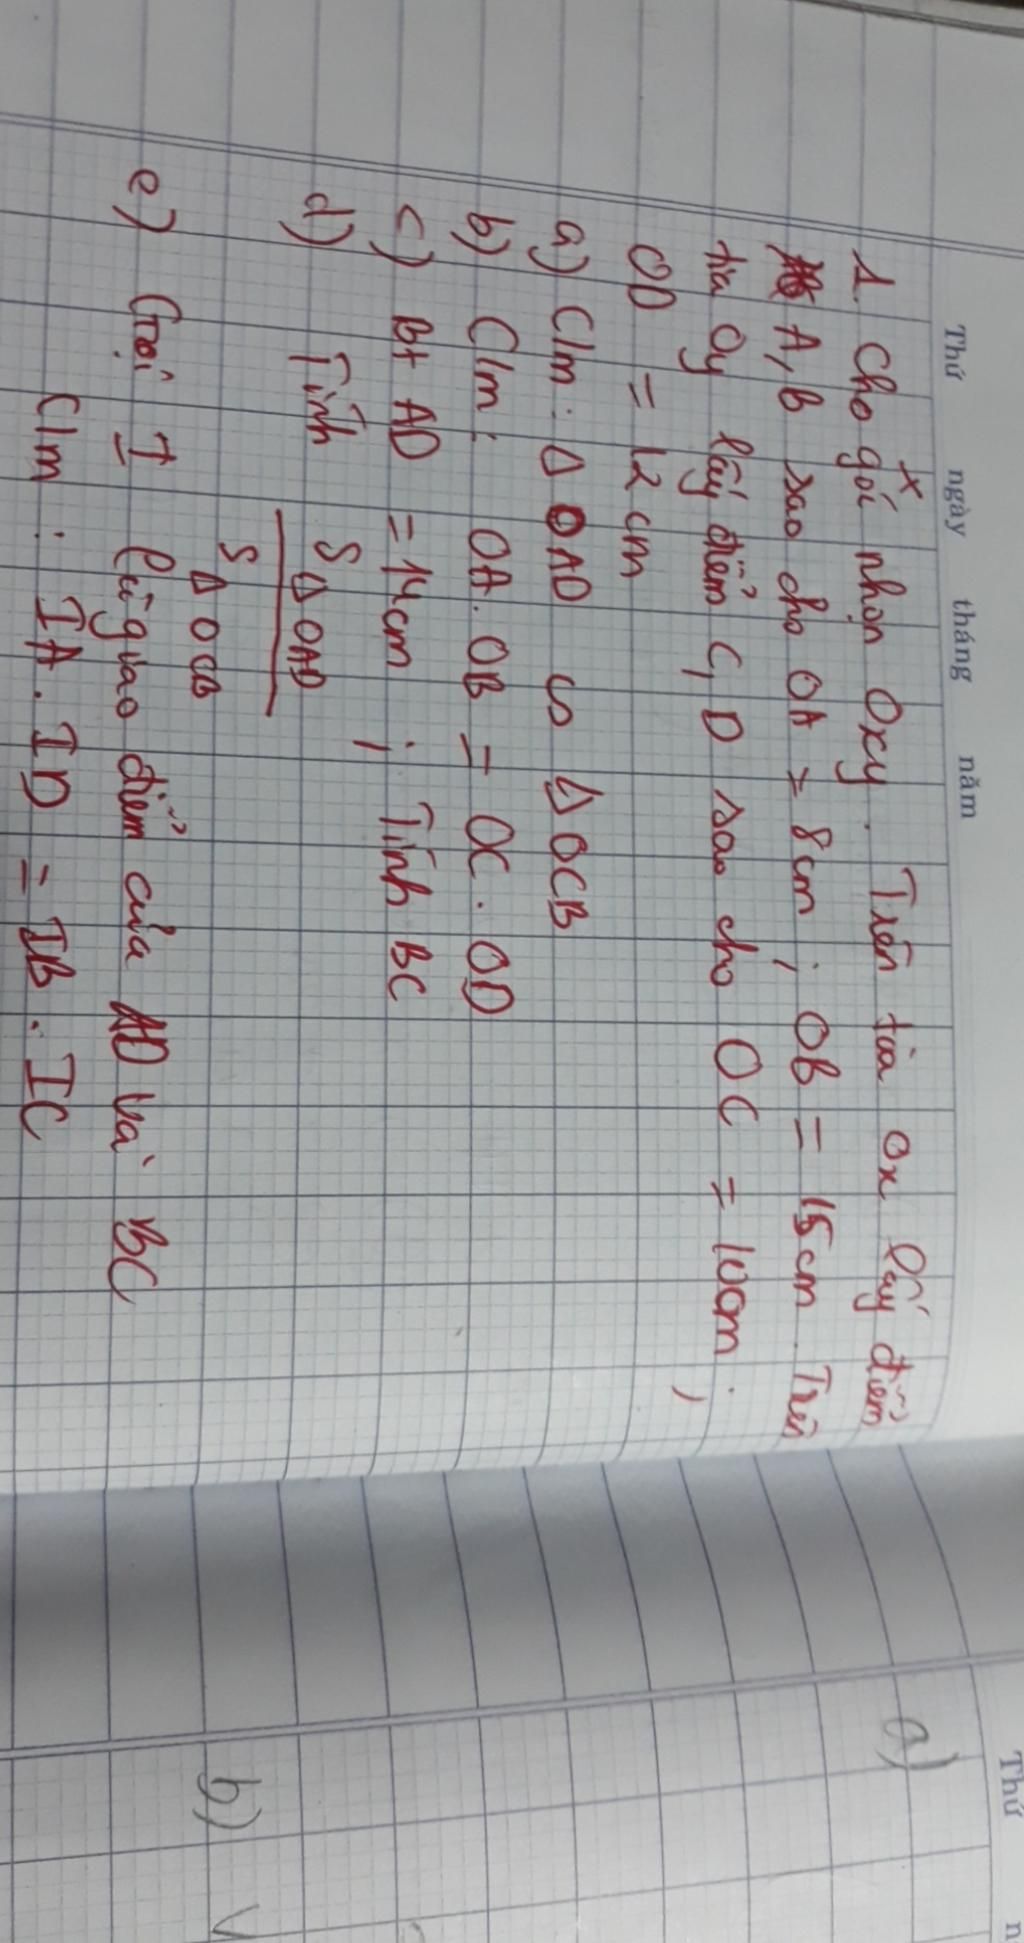 Thứ ngày tháng năm
1. Cho góc nhọn Oxy. Trên tia Ox lấy điểm
A, B sao cho OA = 8cm ; OB = 15cm. Trên
tia Oy lấy điểm C, D sao cho OC = 10cm ;
OD = 12cm
a) C/m : Δ OAD ᔕ Δ OCB
b) C/m : OA. OB = OC. OD
c) Bt AD = 14cm ; Tính BC
d) Tính S Δ OAD
S Δ OCB
e) Gọi I là giao điểm của AD và BC
C/m : IA. ID = IB. IC
Thứ n
a)
b) V